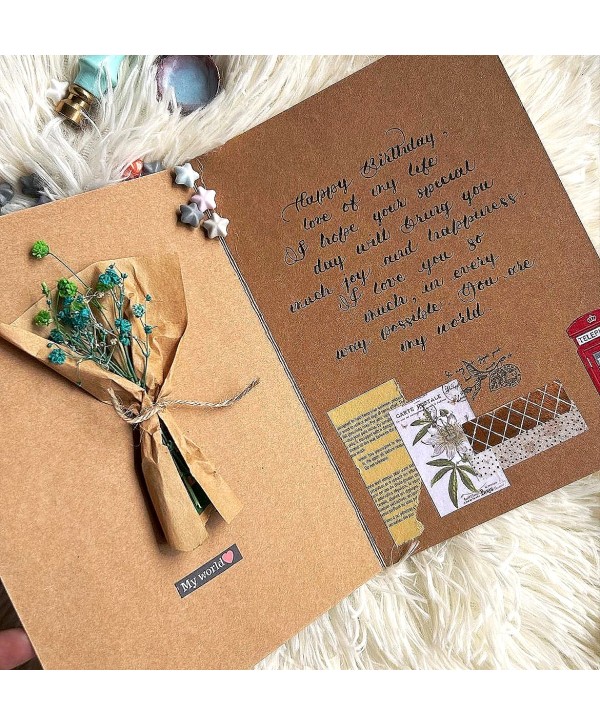 Happy Birthday,
love of my life
I hope your special
day will bring you
much joy and happiness.
I love you so
much, in every
way possible. You are
my world
My world
TELEPH
CARTE POSTALE